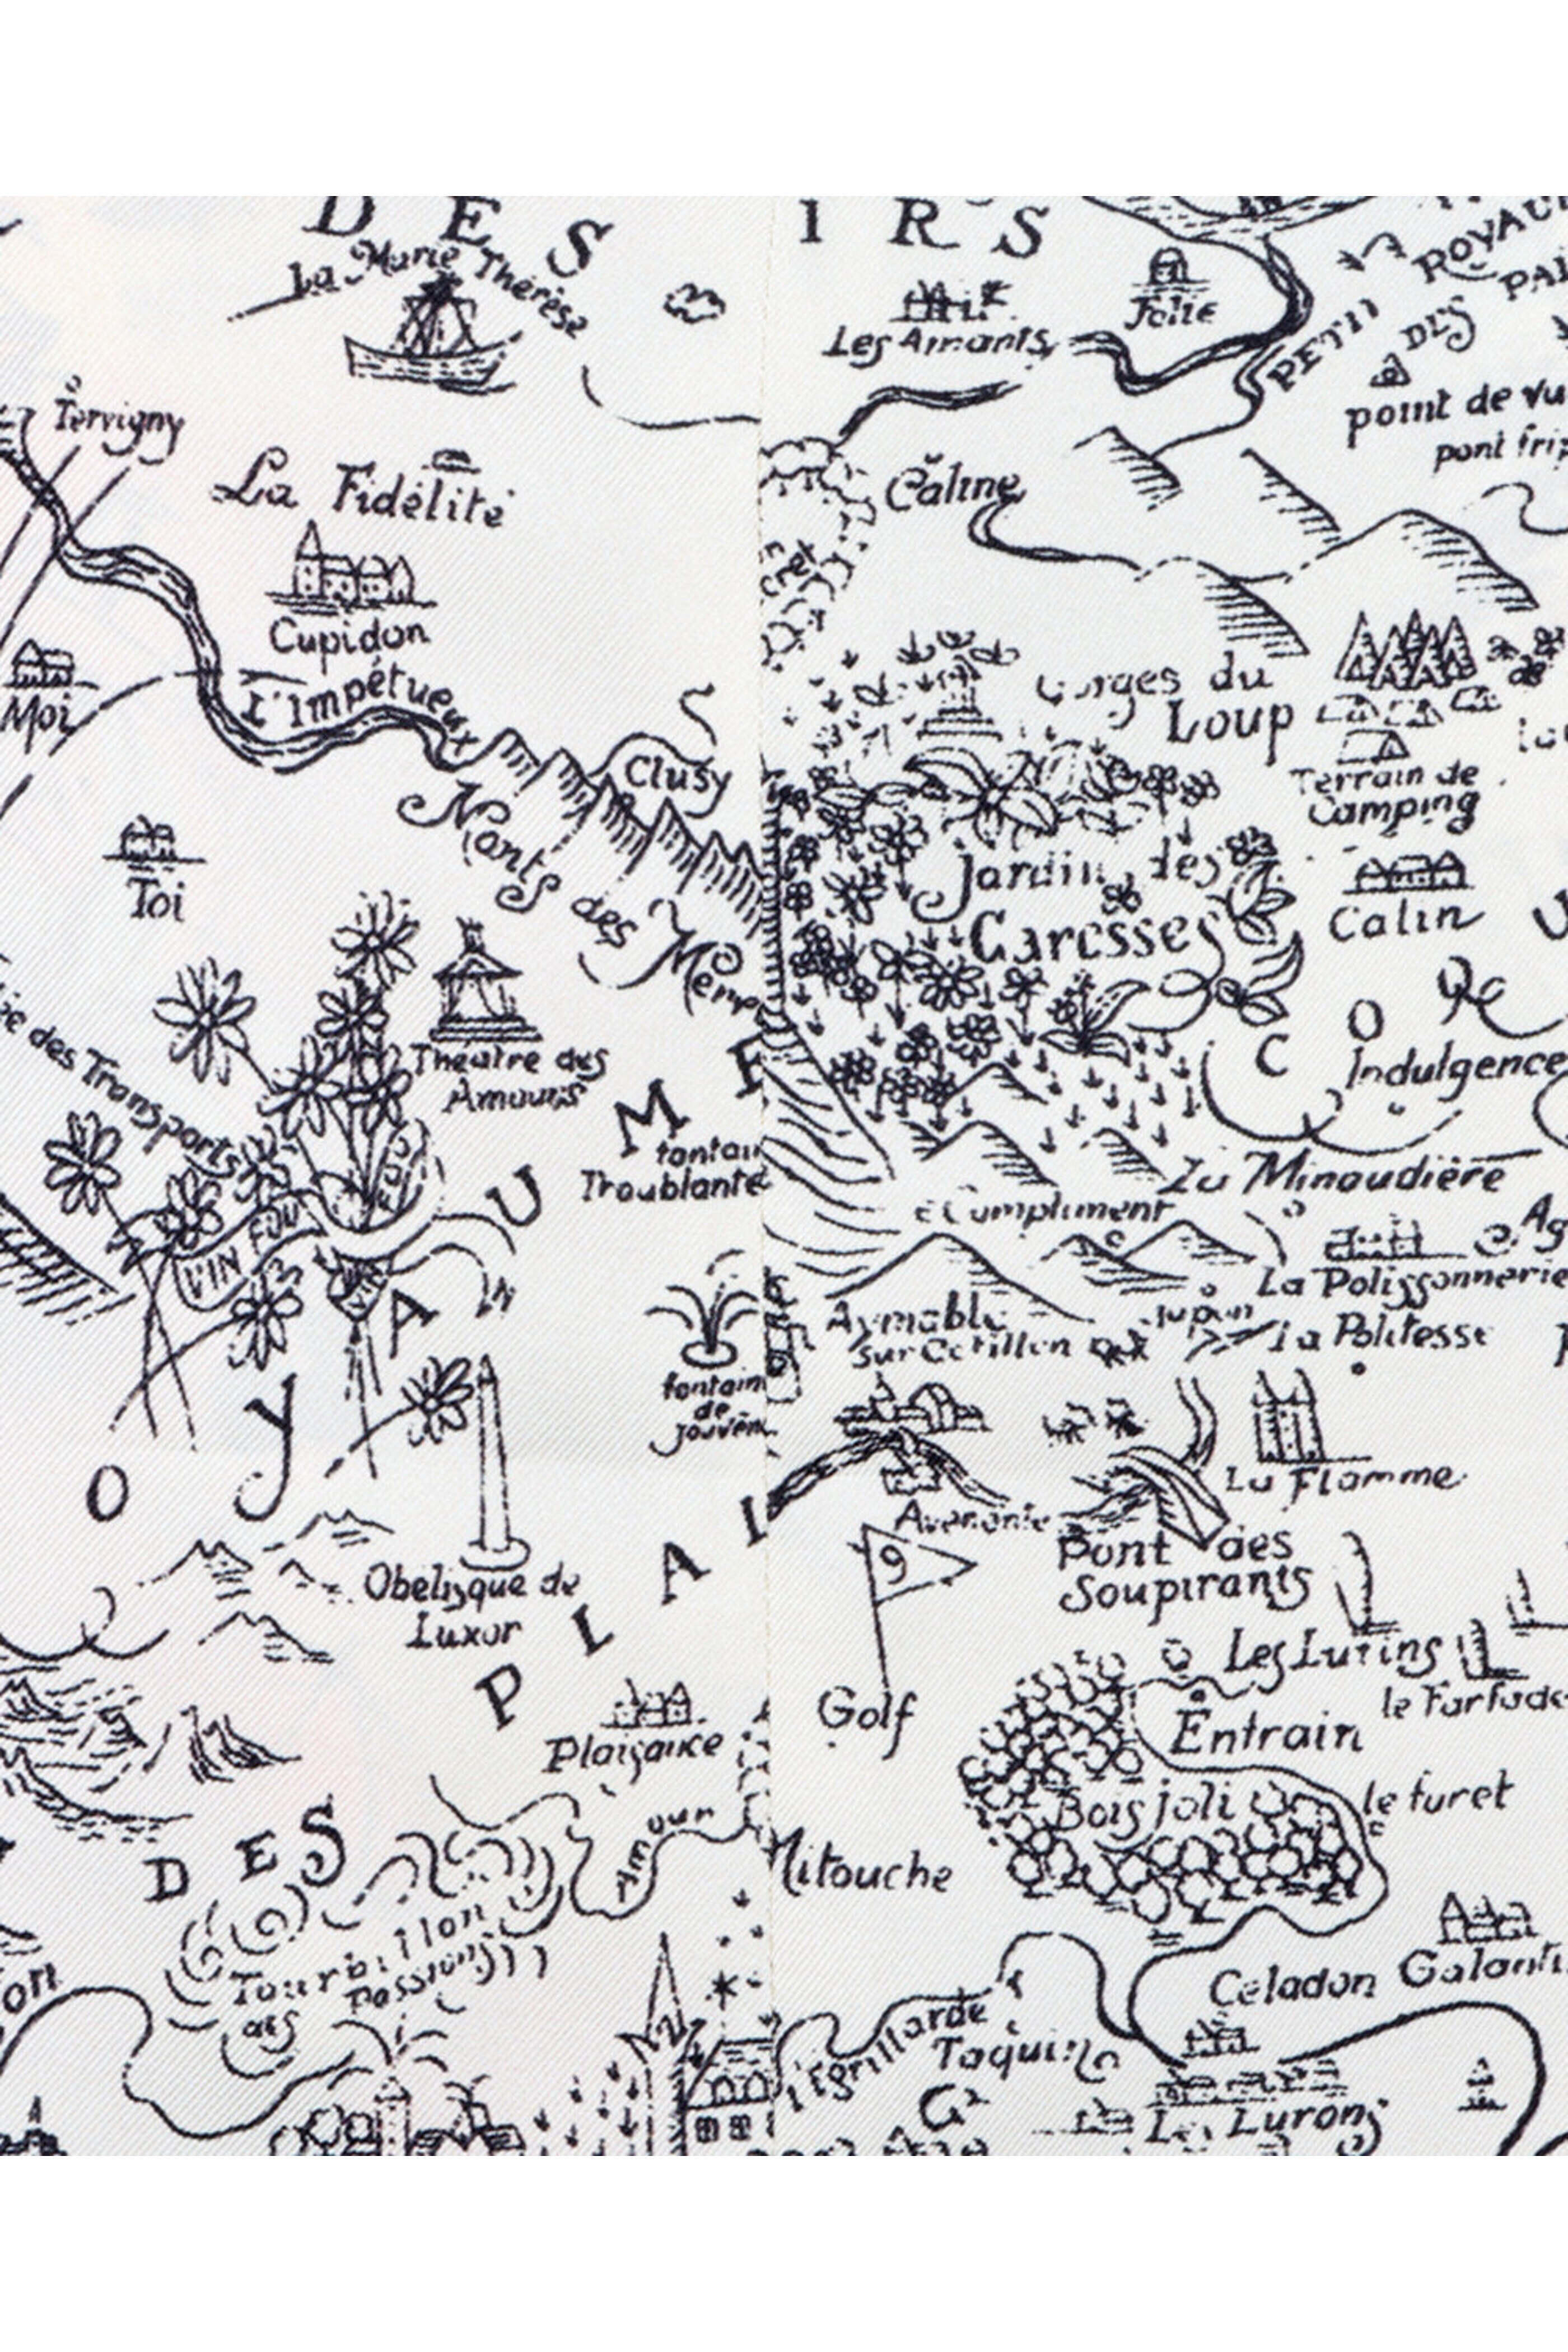 DES
La Marie Thérèse
Tervigny
La Fidélité
Cupidon
L'Impétueux
Moi
Clusy
Monts des
Toi
des Transports
Théatre des
Amours
Troublante
L'IN FOU
Obelisque de
Luxor
de
PLAI
Plaisance
DES
Amour
Tourbillon
des Passions
IRS
Les Amants
Folie
PETIT
DES
point de vu
pont
Câline
Gorges du
Loup
Terrain de
Camping
Jardin des
Caresses
Calin
Indulgence
La Minaudière
Compliment
La Polissonnerie
Aymable
sur Cotillon
la Politesse
La Flamme
Pont des
Soupirants
9
Golf
Les Lutins
Entrain
Bois joli
le furet
Mitouche
Céladon
l'Egrillarde
Taquine
Les Lurons